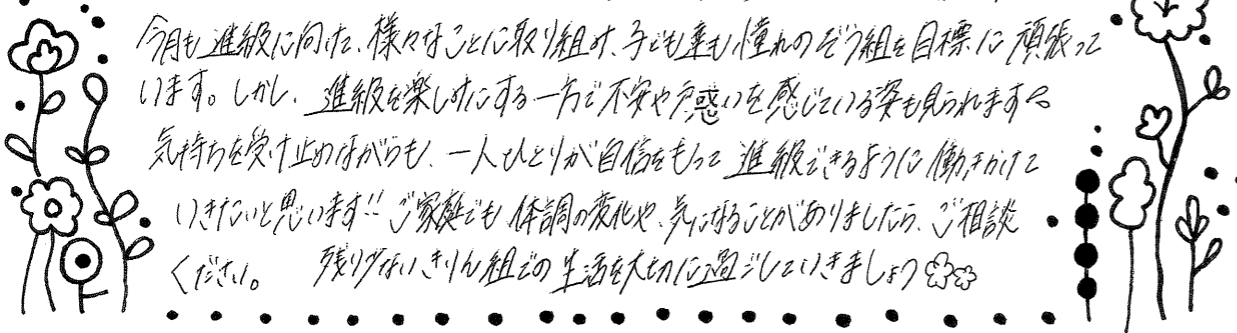 今月も進級に向けた、様々なことに取り組み、子ども達も憧れのぞう組を目標に頑張って
います。しかし、進級を楽しみにする一方で不安や戸惑いを感じている姿も見られます。
気持ちを受け止めながらも、一人ひとりが自信をもって進級できるように働きかけて
いきたいと思います!! ご家庭でも体調の変化や、気になることがありましたら、ご相談
ください。 残り少ないきりん組での生活を大切に過ごしていきましょう